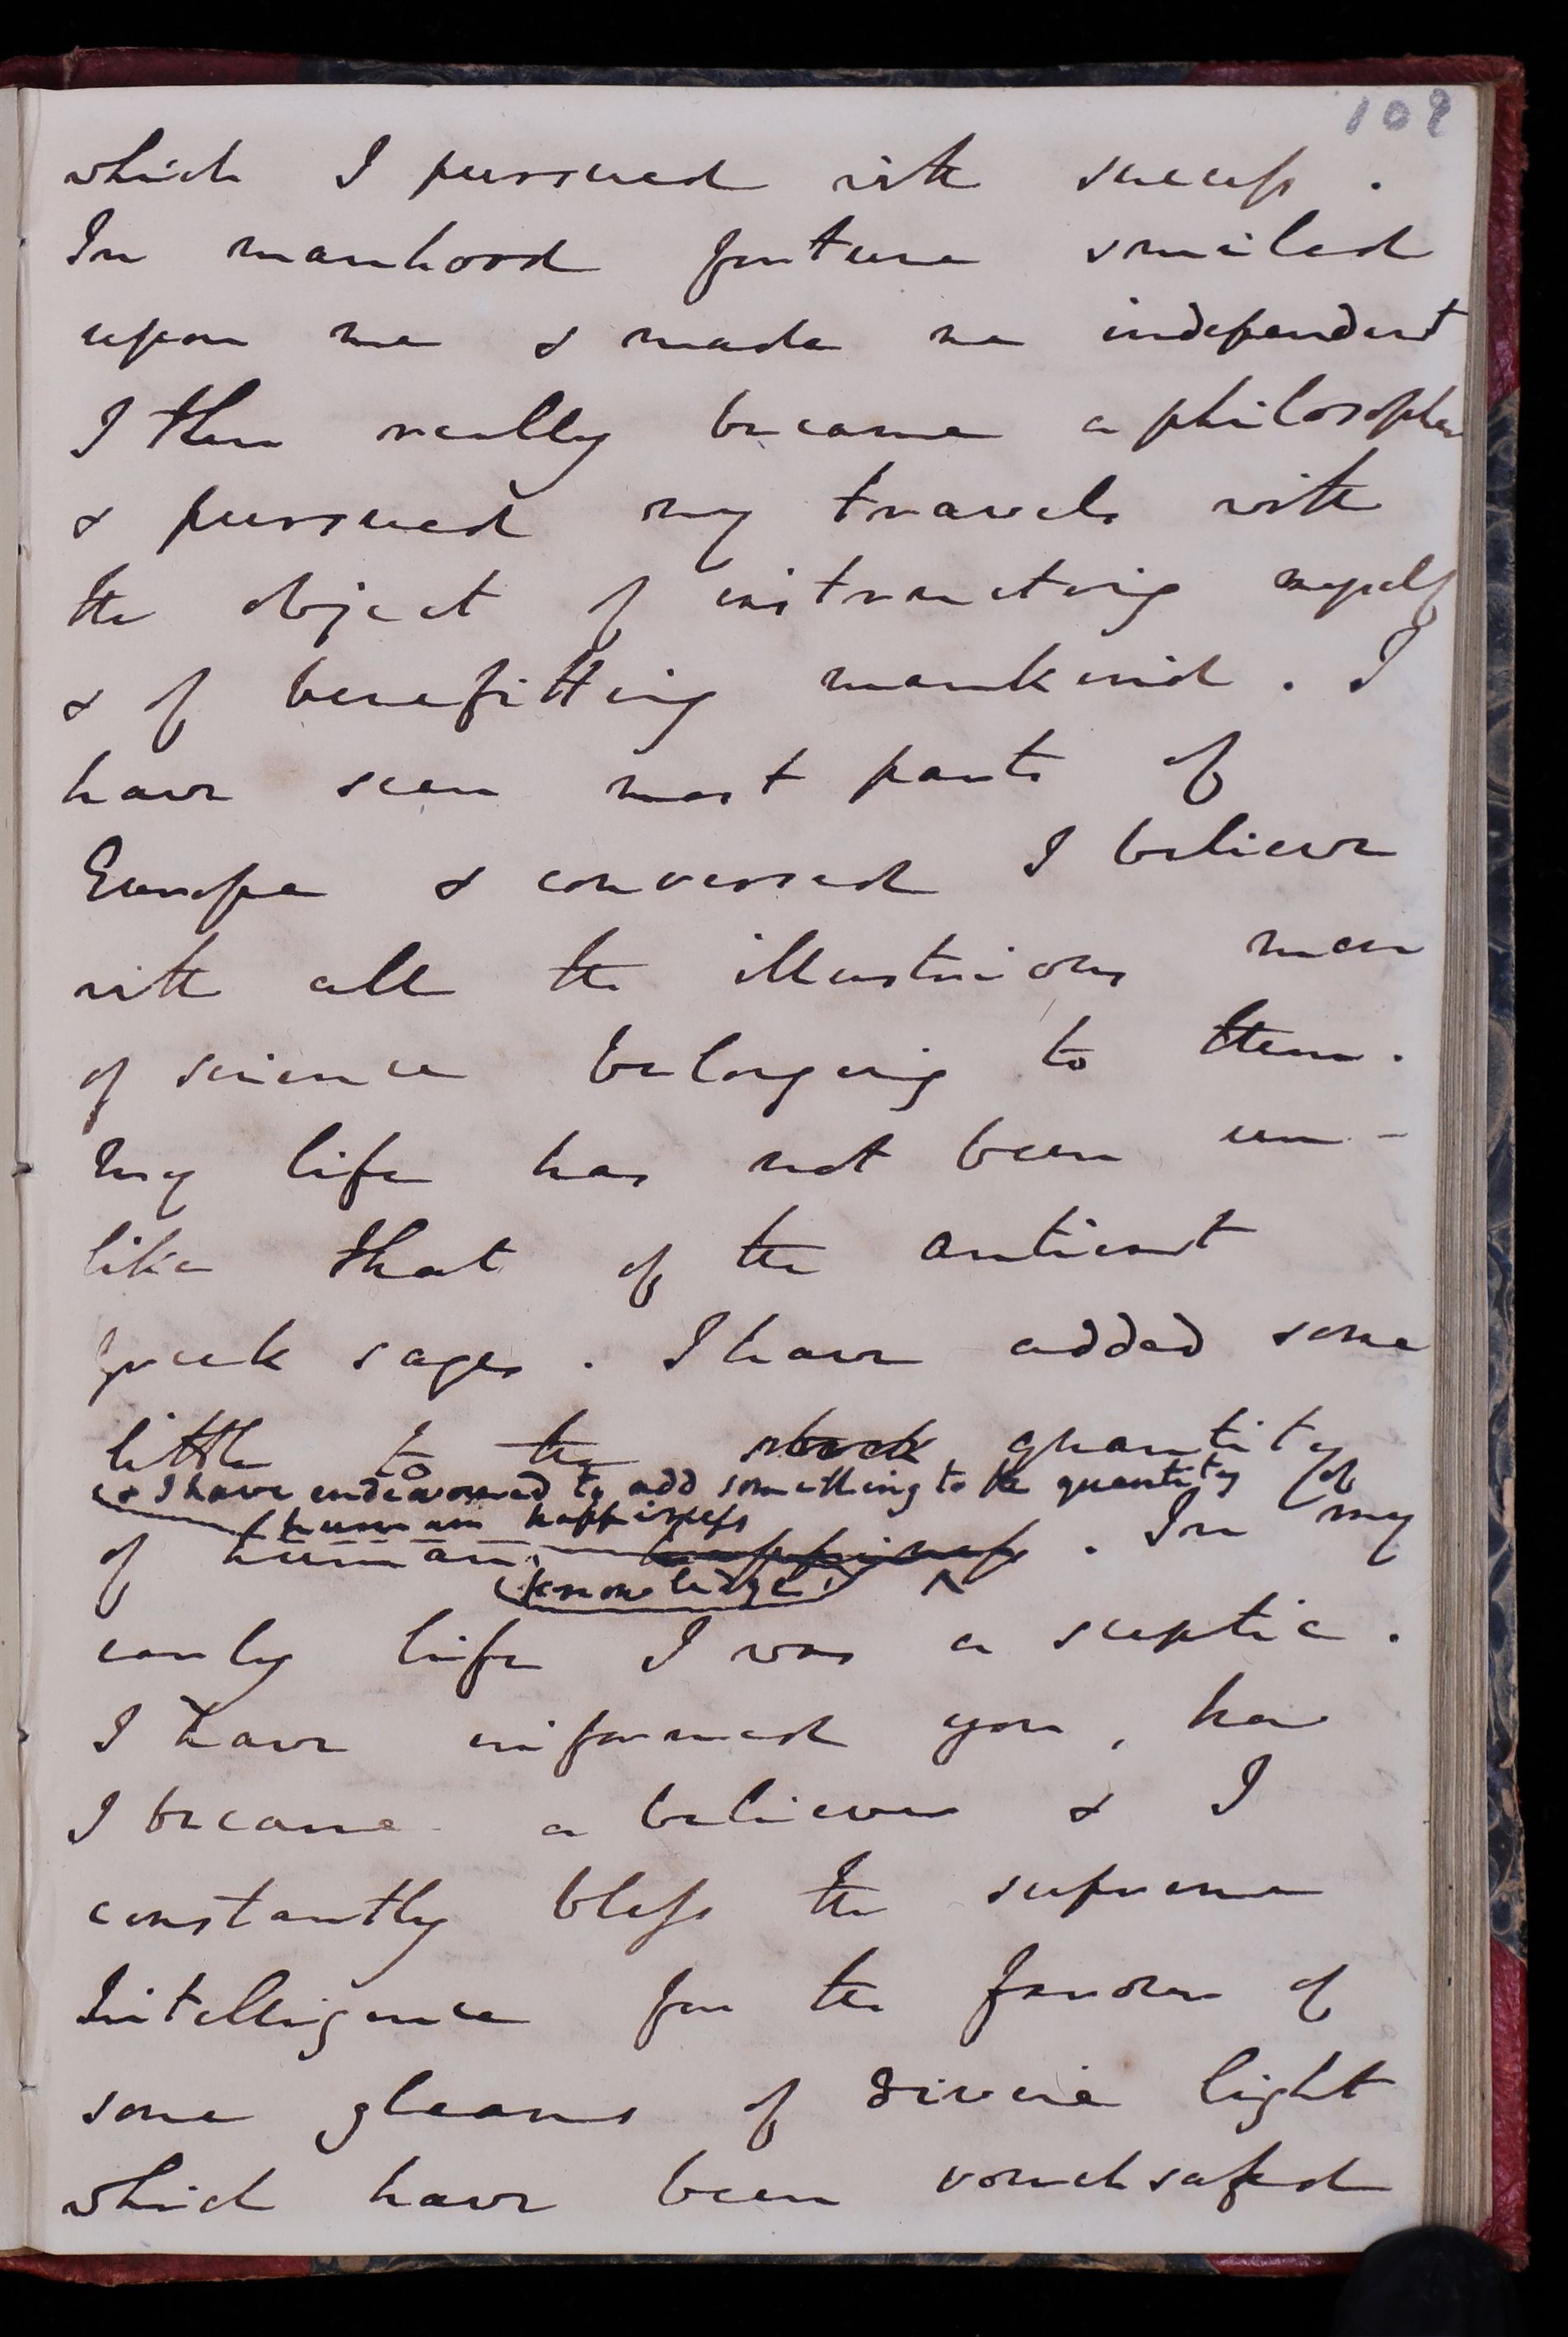 109
which I pursued with success.
In manhood fortune smiled
upon me & made me independent
I then really became a philosopher
& pursued my travels with
the object of instructing myself
& of benefitting mankind. I
have seen most parts of
Europe & conversed I believe
with all the illustrious men
of science belonging to them.
My life has not been un-
like that of the antient
greek sages. I have added some
little to the stock quantity
& I have endeavoured to add something to the quantity of
human happiness
of human happiness. In my
knowledge,
early life I was a sceptic.
I have informed you, how
I became a believer & I
constantly bless the supreme
Intelligence for the favour of
some gleams of divine light
which have been vouchsafed